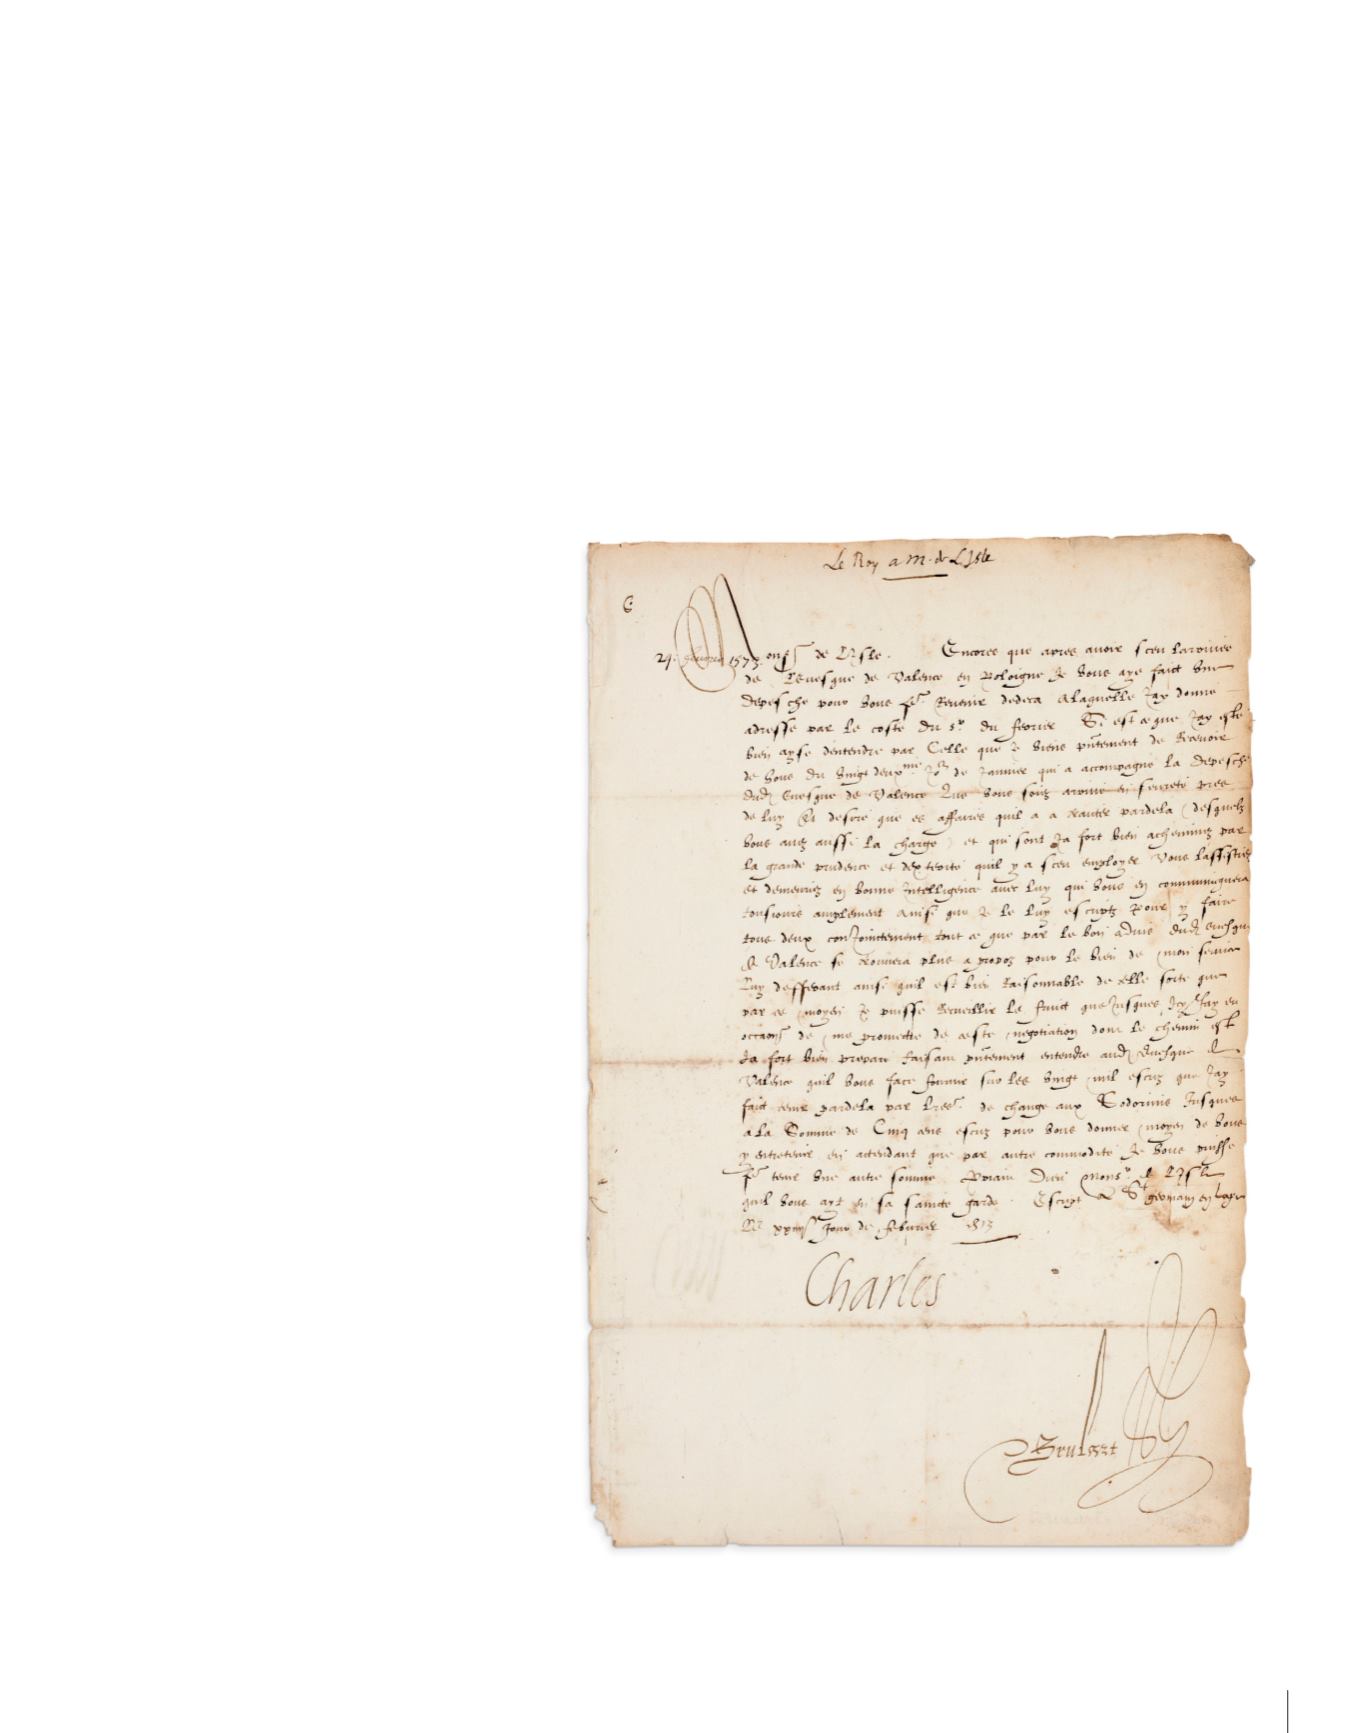 Le Roy a M. de L'Isle
6
24. feburier 1573.
Mons^r de L'Isle. Encores que apres avoir sceu larrivee
de Levesque de Valence en Poloigne Je vous aye faict une
depesche pour vous f^re Revenir dedeca A laquelle Jay donne
adresse par le coste du s^r du ferrier Si est ce que Jay este
bien ayse dentendre par Celle que Je viens pn̄tement de Recevoir
de vous du vingt deux^me Jo^r de Janvier qui a accompagne la depesche
dud̄ Evesque de Valence Que vous soiez arrive en seurete pres
de luy Et desire que es affaires quil a a traicter pardela desquelz
vous avez aussi la charge et qui sont Ja fort bien acheminez par
la grande prudence et dexterite quil y a sceu employer Vous lassistiez
et demeuriez en bonne Intelligence avec luy qui vous en communiquera
tousiours amplement ainsi que Je le luy escriptz Pour y faire
tous deux conJoinctement tout ce que par le bon advis dud̄ evesque
de Valence se trouvera plus a propoz pour le bien de mon service
Luy defferant ainsi quil est bien Raisonnable de telle sorte que
par ce moyen Je puisse Recueillir le fruict que Jusques Icy Jay eu
occaōn de me promettre de ceste negotiation dont le chemin est
Ja fort bien prepare faisant pn̄tement entendre aud̄ Evesque de
Valence quil vous face fournir sur les vingt mil escuz que Jay
faict tenir pardela par l̄res de change aux Jusques
a la Somme de Cinq cens escuz pour vous donner moyen de vous
y entretenir en attendant que par autre commodite Je vous puisse
f^re tenir une autre somme Priant Dieu Mons^r de L'Isle
quil vous ayt en sa saincte garde. Escript a S^t germain en laye
Le jour de feburier 1573
Charles
Brulart